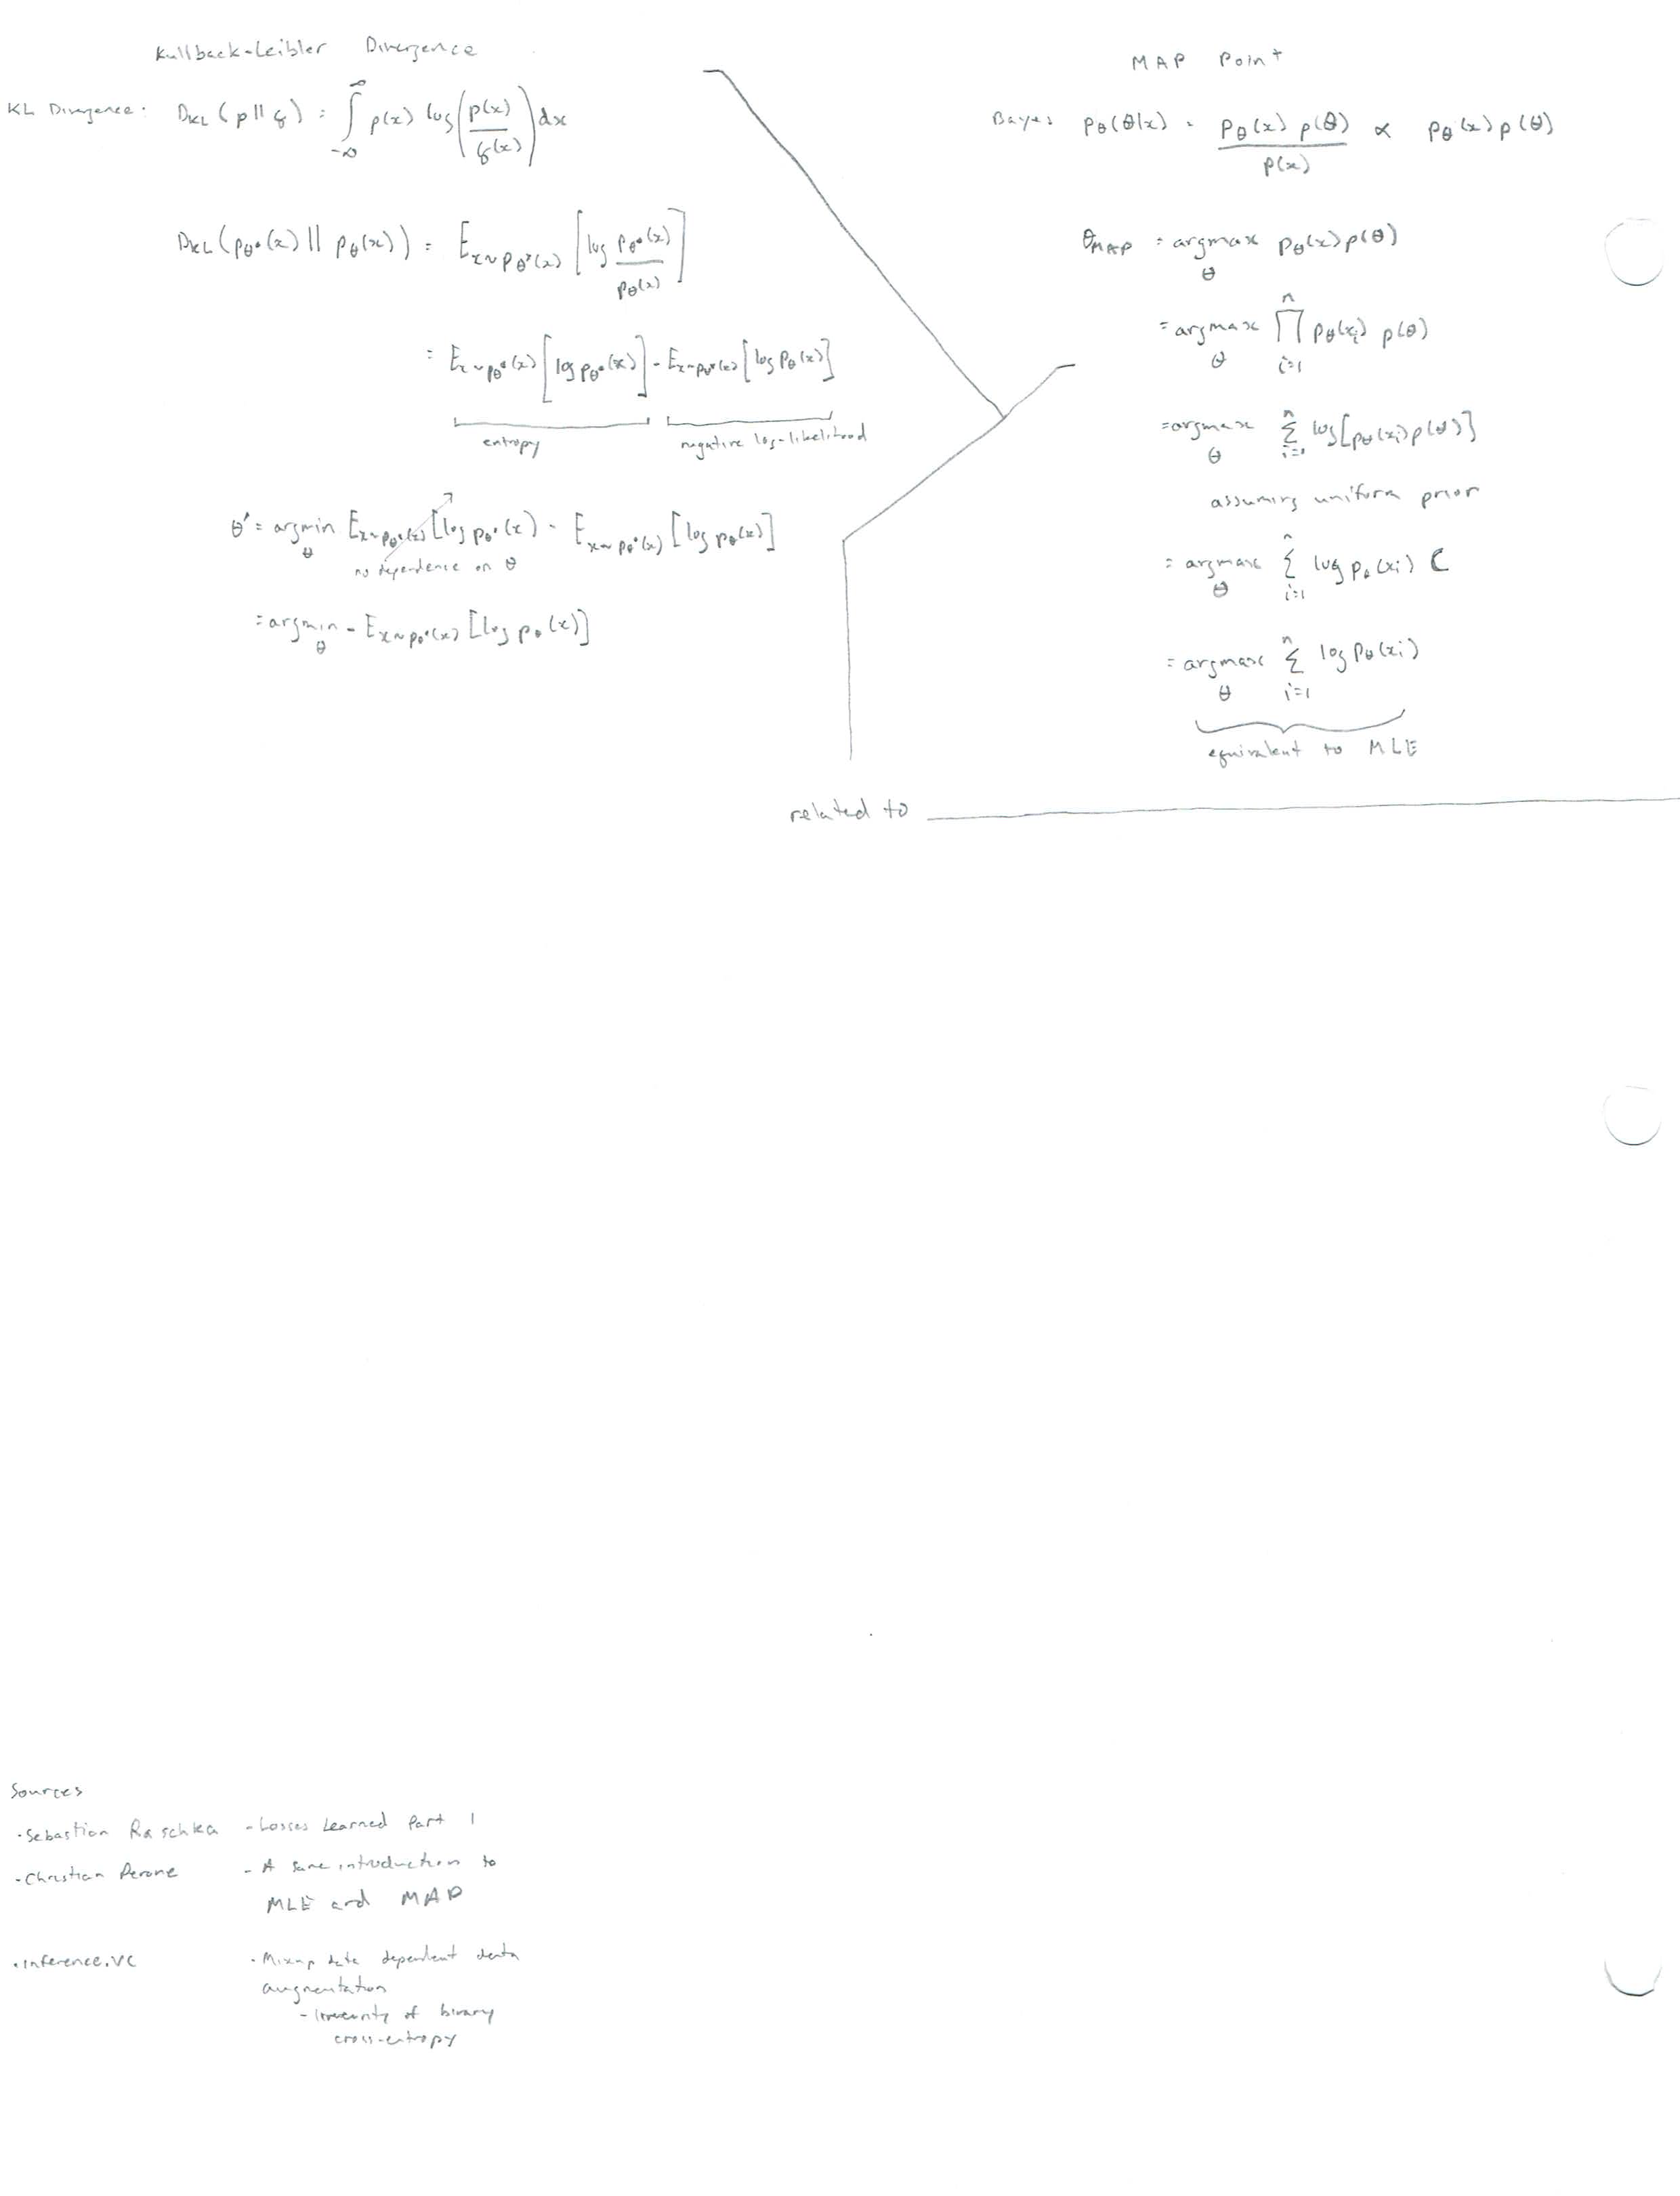 Kullback-Leibler Divergence
KL Divergence: D_KL(p||q) = ∫_{-∞}^{∞} p(x) log(p(x)/q(x)) dx
D_KL(p_θ*(x) || p_θ(x)) = E_{x~p_θ*(x)} [log p_θ*(x)/p_θ(x)]
= E_{x~p_θ*(x)} [log p_θ*(x)] - E_{x~p_θ*(x)} [log p_θ(x)]
entropy negative log-likelihood
θ* = argmin_θ E_{x~p_θ*(x)} [log p_θ*(x) - E_{x~p_θ*(x)} [log p_θ(x)]
no dependence on θ
= argmin_θ - E_{x~p_θ*(x)} [log p_θ(x)]
MAP Point
Bayes p_θ(θ|x) = p_θ(x) p(θ)/p(x) ∝ p_θ(x) p(θ)
θ_MAP = argmax_θ p_θ(x) p(θ)
= argmax_θ ∏_{i=1}^{n} p_θ(x_i) p(θ)
= argmax_θ Σ_{i=1}^{n} log[p_θ(x_i) p(θ)]
assuming uniform prior
= argmax_θ Σ_{i=1}^{n} log p_θ(x_i) C
= argmax_θ Σ_{i=1}^{n} log p_θ(x_i)
equivalent to MLE
related to
Sources
·Sebastian Raschka - Losses Learned Part 1
·Christian Perone - A sane introduction to
MLE and MAP
·Inference.VC · Mixup data dependent data
augmentation
- of binary
cross-entropy